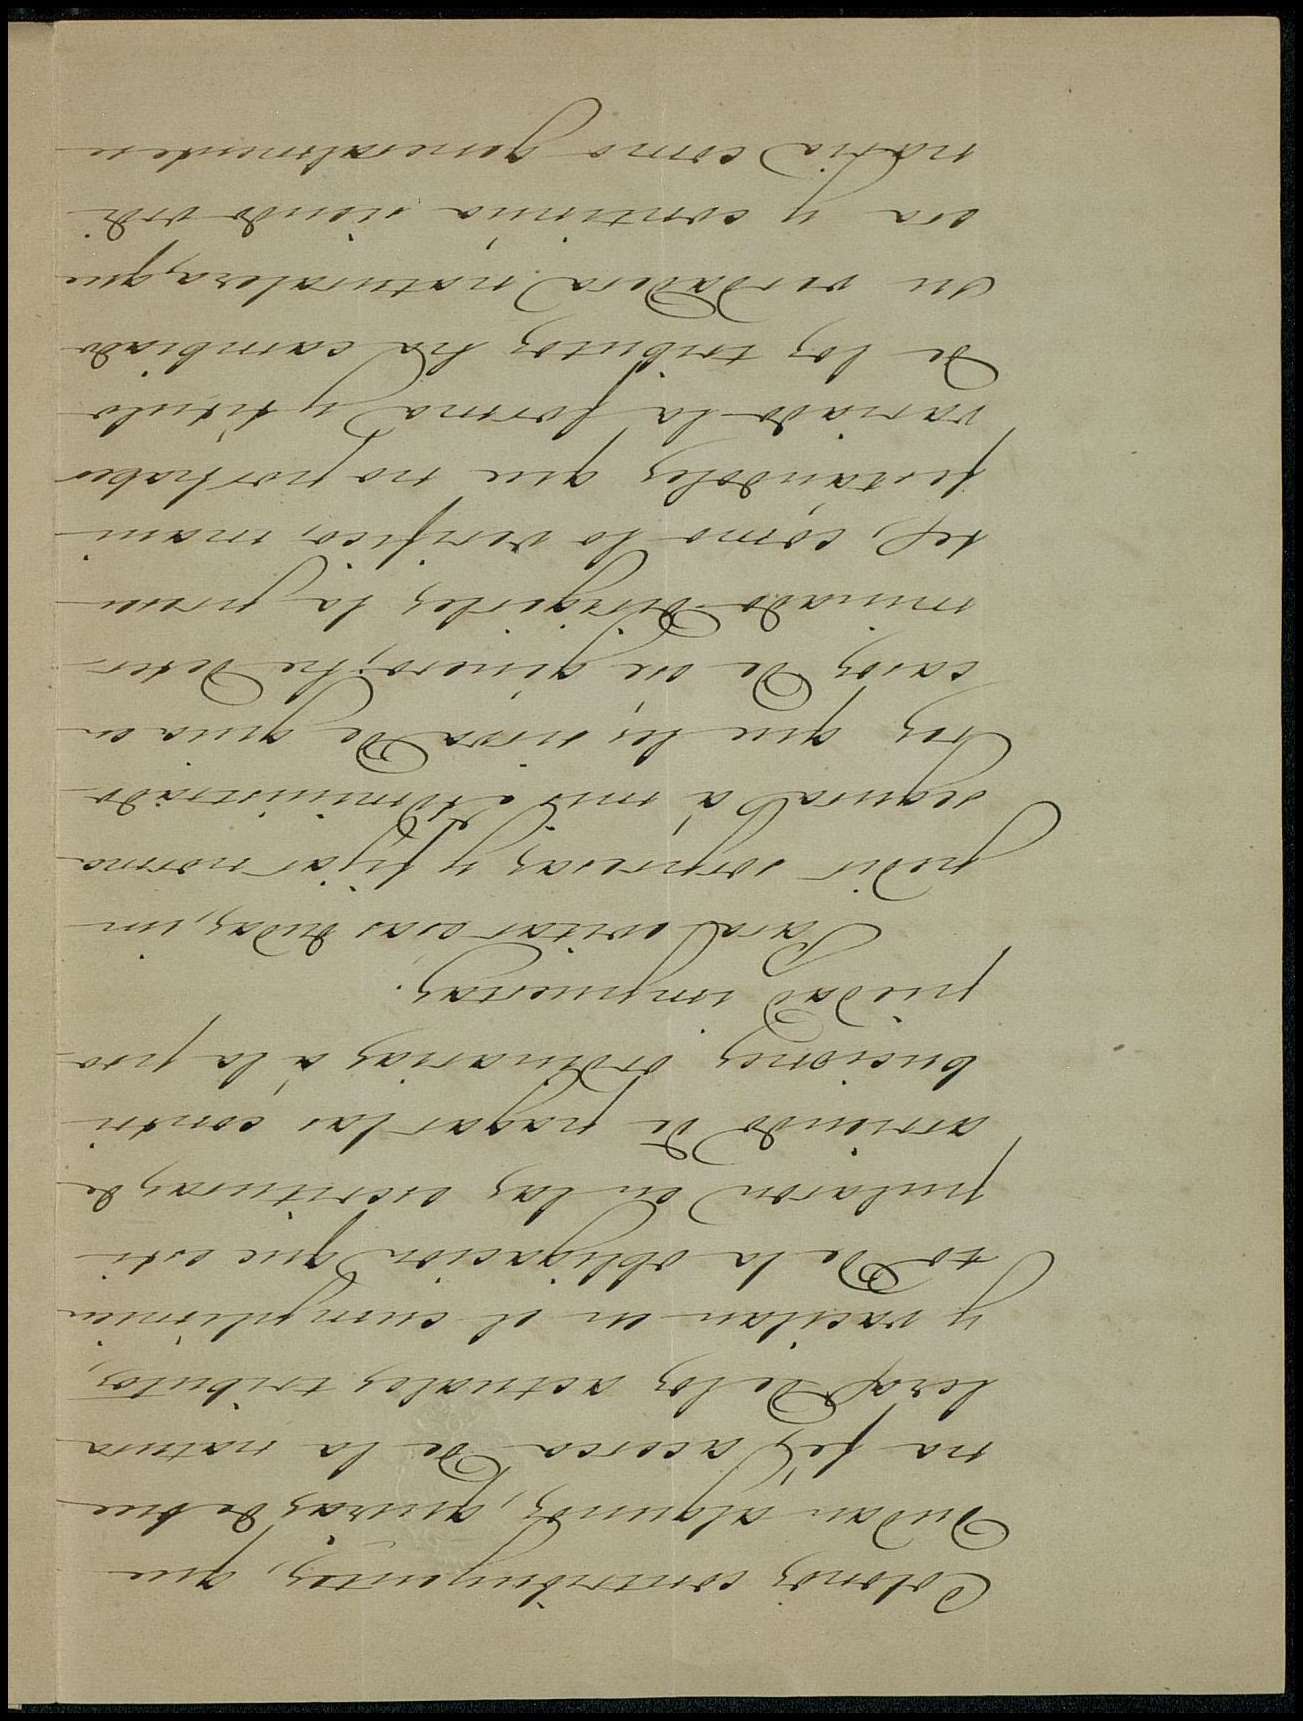 Colonos contribuyentes, que
dudan algunos, quizas de bue
na fé, acerca de la natura
leza de los actuales tributos,
y vacilan en el cumplimien
to de la obligacion que esti
pularon en las escrituras de
arriendo de pagar las contri
buciones ordinarias á la pro
piedad impuestas.
Para evitar esas dudas, im
pedir sorpresas y fijar norma
segura á mis Administrado
res que les sirva de guia en
casos de ese género, he deter
minado dirigirles la presen
te, como lo verifico, mani
festandoles que no por haber
variado la forma y título
de los tributos ha cambiado
su verdadera naturaleza, que
era y continúa siendo ordi
naria como generalmente se